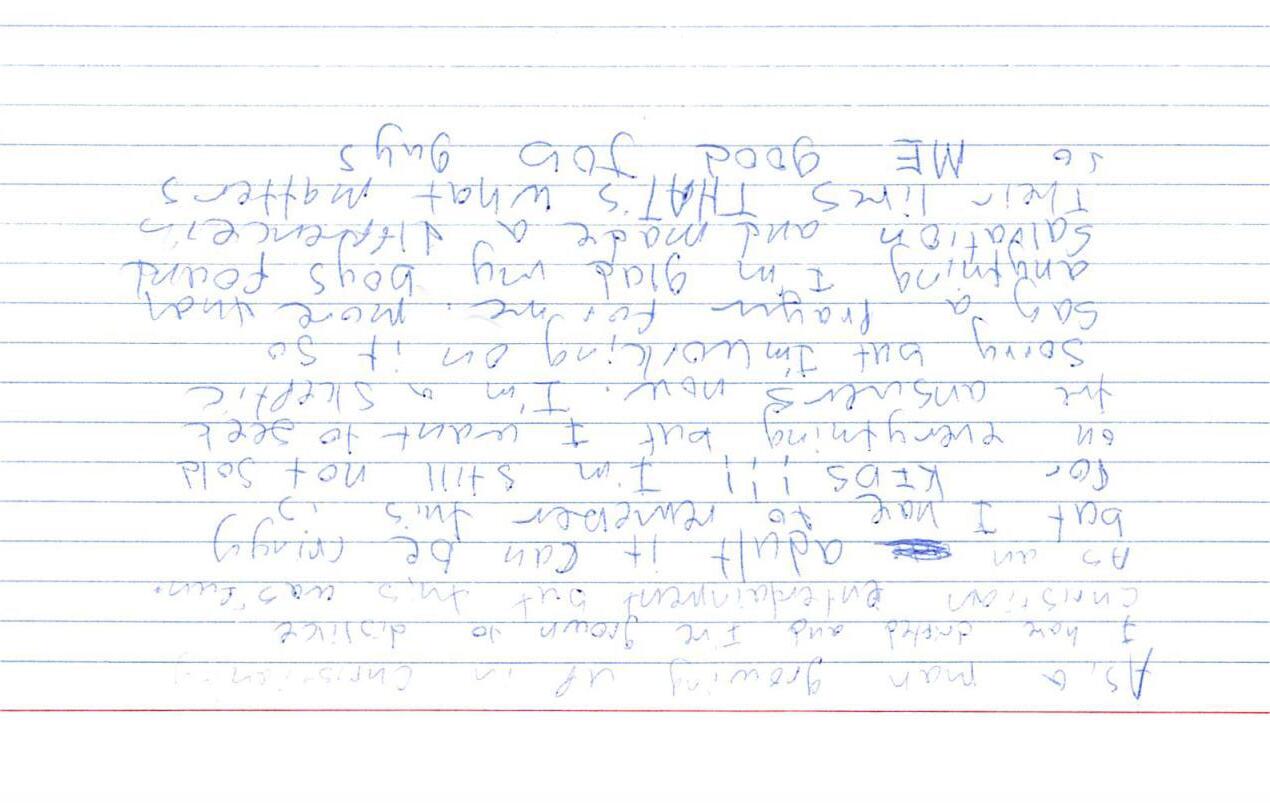 As a man growing up in christianity
I have drifted and I've grown to dislike
christian entertainment but this was fun.
As an adult it can be cringy
but I have to remeber this is
for KIDS !!!! I'm still not sold
on everything but I want to seek
the answers now. I'm a skeptic
sorry but I'm working on it so
say a prayer for me. more than
anything I'm glad my boys found
salvation and made a difference in
Their lives THAT's what matters
to ME good job guys